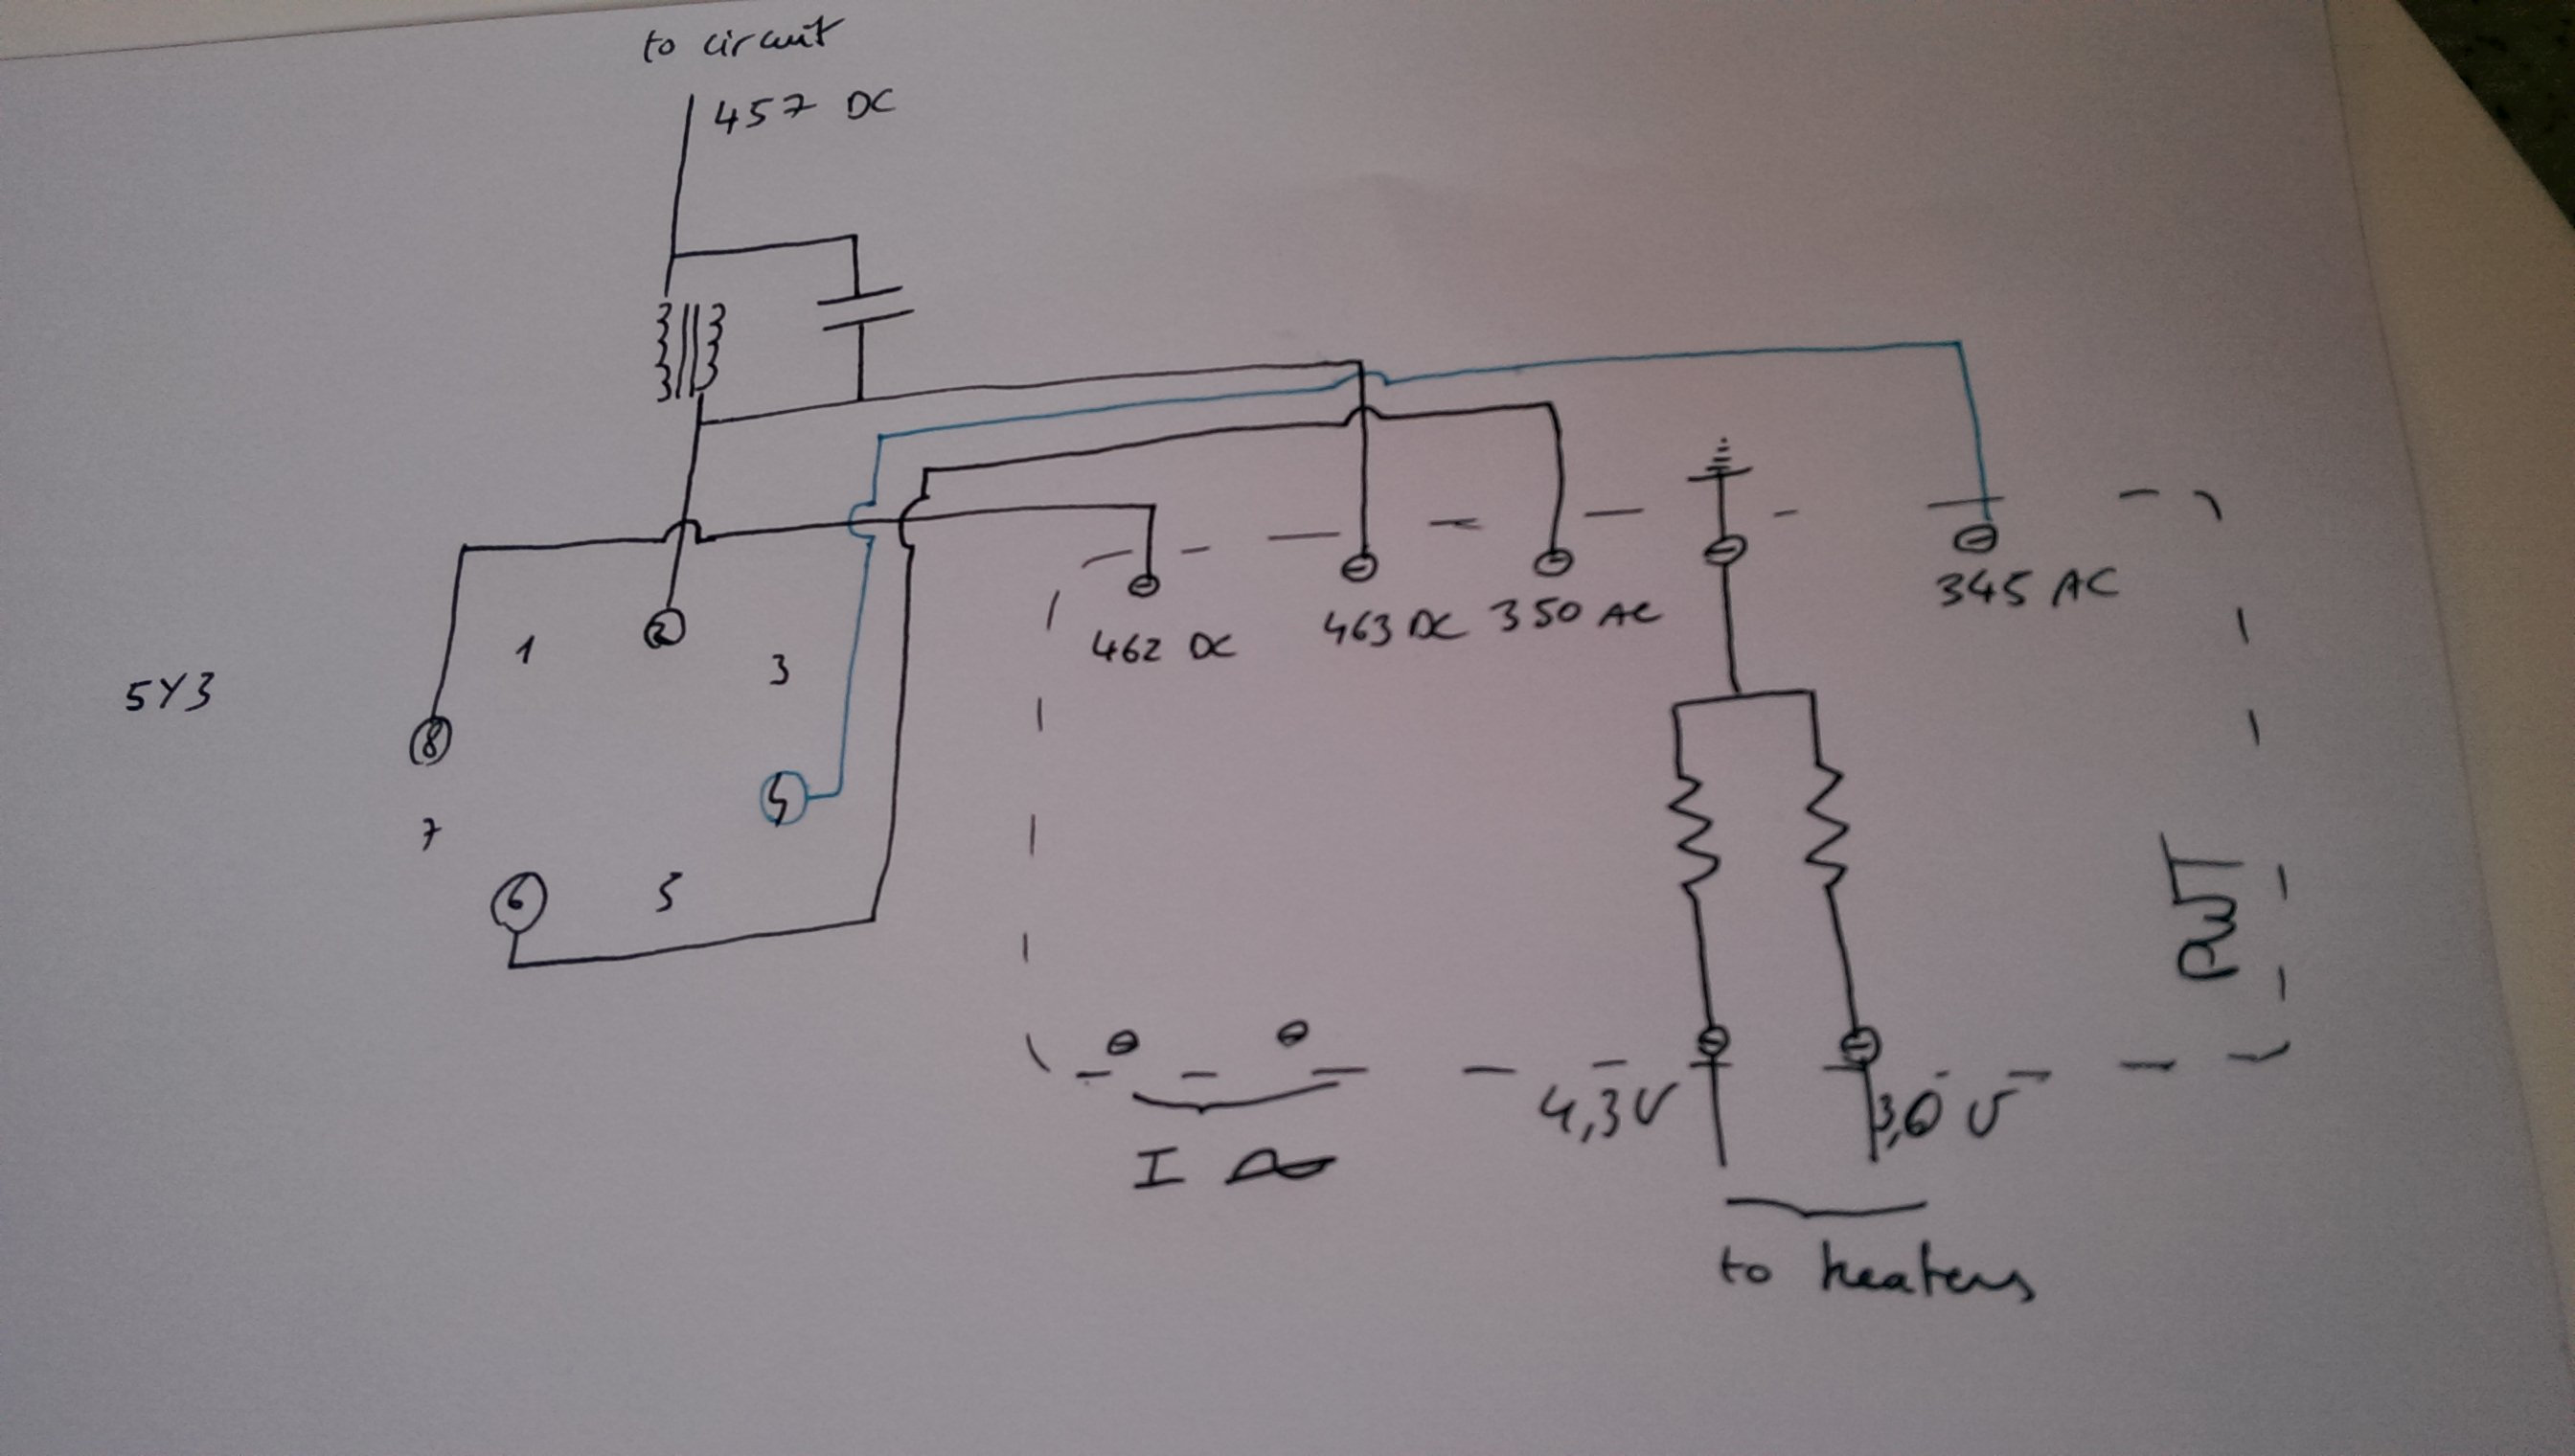 to circuit
457 DC
5Y3
1
2
3
4
5
6
7
8
462 DC
463 DC
350 AC
345 AC
PWT
4,3V
3,0 V
I
to heaters